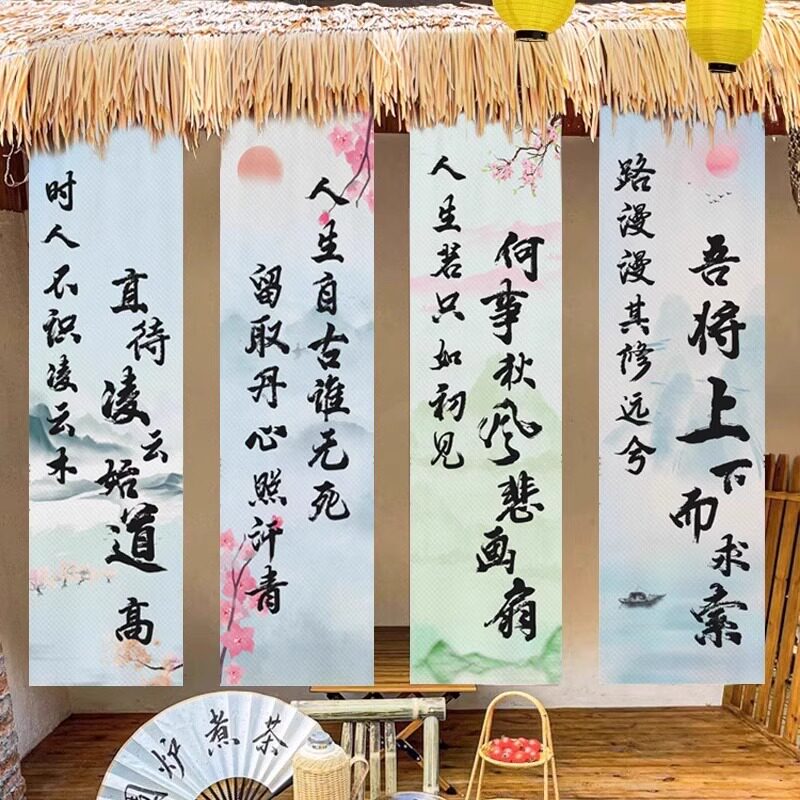 时人不识凌云木
直待凌云始道高
人生自古谁无死
留取丹心照汗青
人生若只如初见
何事秋风悲画扇
路漫漫其修远兮
吾将上下而求索
围炉煮茶